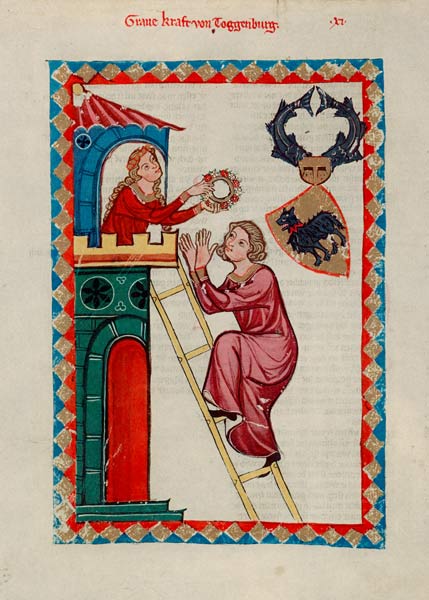 Graue Kraft von Toggenburg.
·XI·